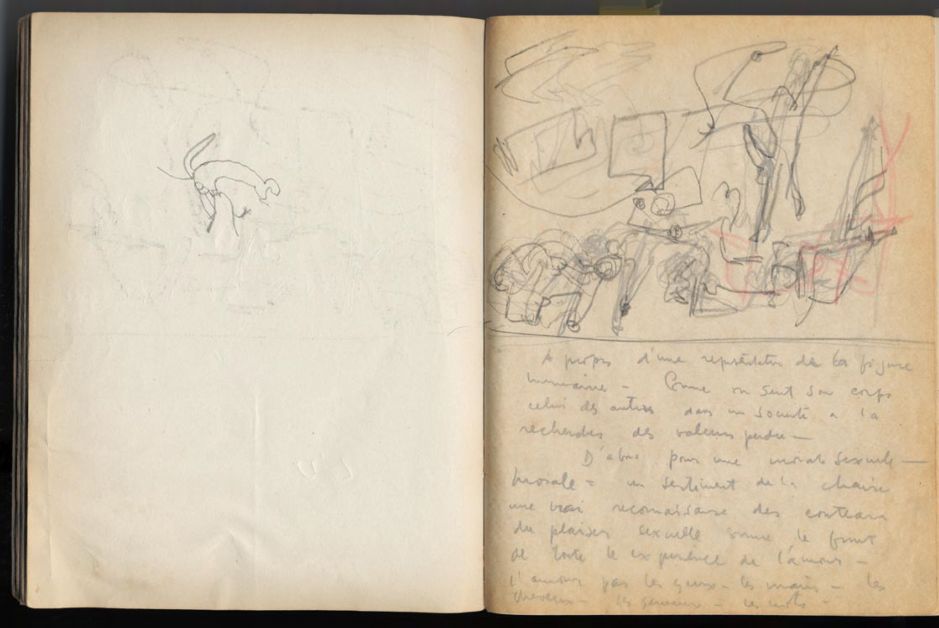 A propos d'une représentation de la figure
humaine - Comme on sent son corps
celui des autres dans un société a la
recherches des valeurs perdu -
D'abor pour une morale sexuelle -
morale = un sentiment de la chaire
une vrai reconaissance des
du plaisir sexuelle comme le fruit
de toute le experience de l'amour -
l'amour par les yeux - les mains - les
cheveux - les - les